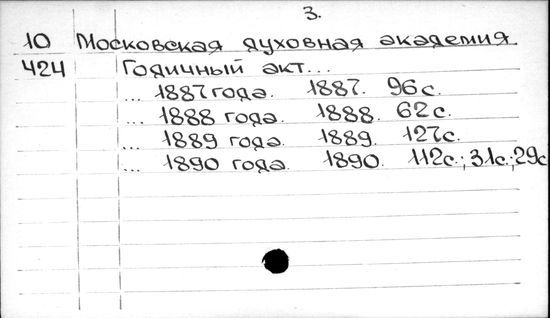 3.
10 Московская духовная академия
424 Годичный акт...
... 1887 года. 1887. 96 с.
... 1888 года. 1888. 62 с.
... 1889 года. 1889. 127 с.
... 1890 года. 1890. 112 с.; 31 с.; 29 с